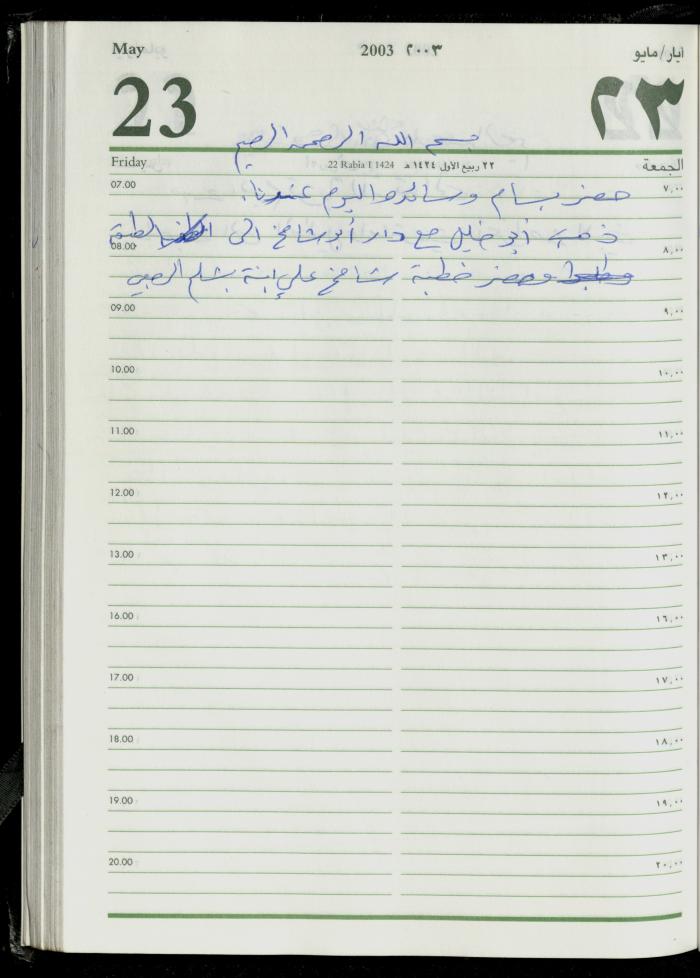 May 2003 ٢٠٠٣ أيار/مايو
23 ٢٣
بسم الله الرحمن الرحيم
Friday 22 Rabia I 1424 ٢٢ ربيع الأول ١٤٢٤ هـ الجمعة
07.00 ٧,٠٠
حضر بسام ورسائده اليوم عندنا.
ذهب أبو خليل مع دار أبو شامخ الى
08.00 ٨,٠٠
وحضر خطبة شامخ علي ابنة
09.00 ٩,٠٠
10.00 ١٠,٠٠
11.00 ١١,٠٠
12.00 ١٢,٠٠
13.00 ١٣,٠٠
16.00 ١٦,٠٠
17.00 ١٧,٠٠
18.00 ١٨,٠٠
19.00 ١٩,٠٠
20.00 ٢٠,٠٠